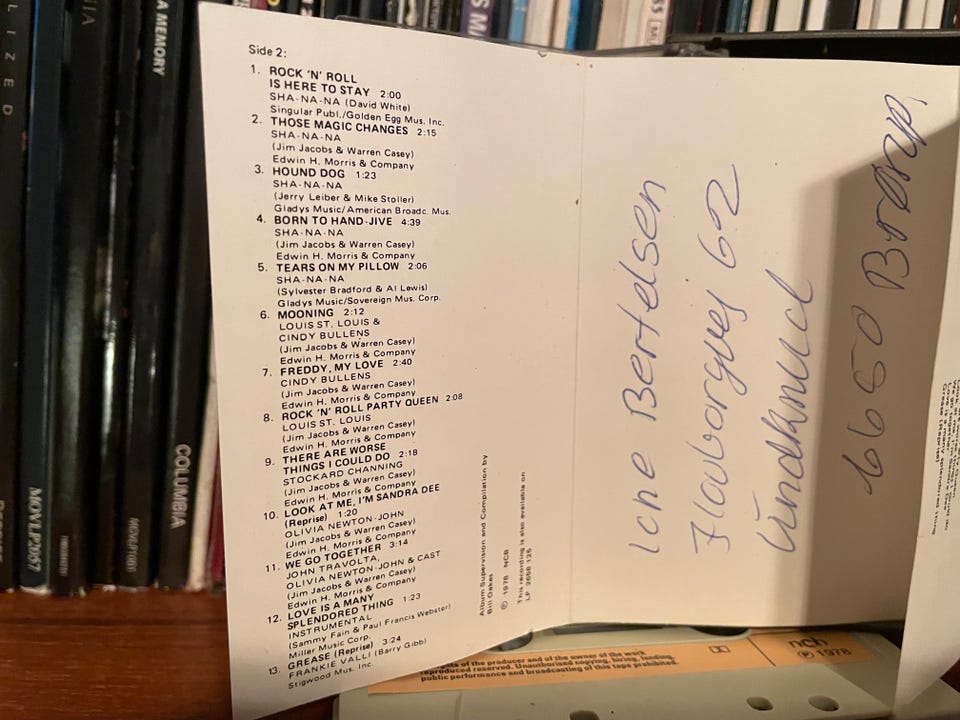 Side 2:
1. ROCK 'N' ROLL
IS HERE TO STAY 2:00
SHA-NA-NA (David White)
Singular Publ./Golden Egg Mus. Inc.
2. THOSE MAGIC CHANGES 2:15
SHA-NA-NA
(Jim Jacobs & Warren Casey)
Edwin H. Morris & Company
3. HOUND DOG 1:23
SHA-NA-NA
(Jerry Leiber & Mike Stoller)
Gladys Music/American Broadc. Mus.
4. BORN TO HAND-JIVE 4:39
SHA-NA-NA
(Jim Jacobs & Warren Casey)
Edwin H. Morris & Company
5. TEARS ON MY PILLOW 2:06
SHA-NA-NA
(Sylvester Bradford & Al Lewis)
Gladys Music/Sovereign Mus. Corp.
6. MOONING 2:12
LOUIS ST. LOUIS &
CINDY BULLENS
(Jim Jacobs & Warren Casey)
Edwin H. Morris & Company
7. FREDDY, MY LOVE 2:40
CINDY BULLENS
(Jim Jacobs & Warren Casey)
Edwin H. Morris & Company
8. ROCK 'N' ROLL PARTY QUEEN 2:08
LOUIS ST. LOUIS
(Jim Jacobs & Warren Casey)
Edwin H. Morris & Company
9. THERE ARE WORSE
THINGS I COULD DO 2:18
STOCKARD CHANNING
(Jim Jacobs & Warren Casey)
Edwin H. Morris & Company
10. LOOK AT ME, I'M SANDRA DEE
(Reprise) 1:20
OLIVIA NEWTON-JOHN
(Jim Jacobs & Warren Casey)
Edwin H. Morris & Company
11. WE GO TOGETHER 3:14
JOHN TRAVOLTA,
OLIVIA NEWTON-JOHN & CAST
(Jim Jacobs & Warren Casey)
Edwin H. Morris & Company
12. LOVE IS A MANY
SPLENDORED THING 1:23
INSTRUMENTAL
(Sammy Fain & Paul Francis Webster)
Miller Music Corp.
13. GREASE (Reprise) 3:24
FRANKIE VALLI (Barry Gibb)
Stigwood Mus. Inc.
Album Supervision and Compilation by
Bill Oakes
℗ 1978 NCB
This recording is also available on
LP 2658 125
Lone Bertelsen
Flovborgvej 62
Lindknud
6650 Brørup.
rights of the producer and of the owner of the work
reproduced reserved. Unauthorised copying, hiring, lending,
public performance and broadcasting of this tape prohibited.
ncb
℗ 1978
A MEMORY
COLUMBIA
MOVLP2057
LIZED